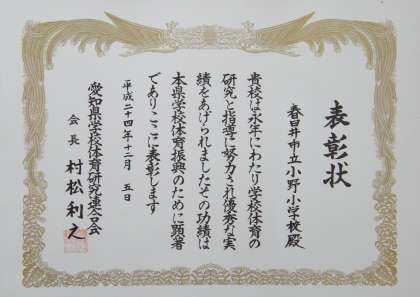 表彰状
春日井市立小野小学校殿
貴校は永年にわたり学校体育の
研究と指導に努力され優秀な実
績をあげられましたその功績は
本県学校体育振興のために顕著
でありここに表彰します
平成二十四年十二月 五日
愛知県学校体育研究連合会
会長 村松利之